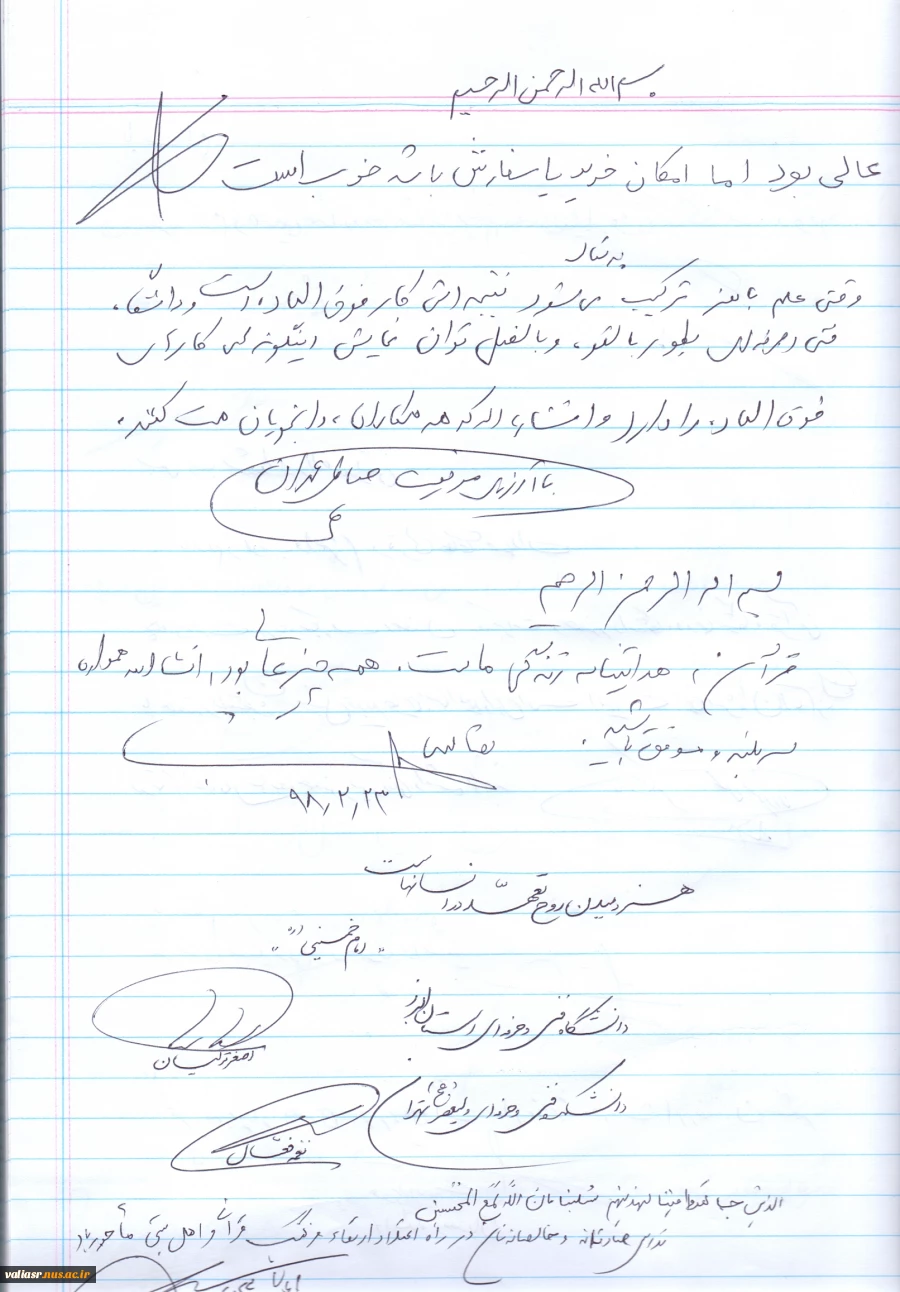 بسم الله الرحمن الرحیم
عالی بود اما امکان خرید یا سفارش باشد خوب است
به تمام
وقتی علم با هنر ترکیب می شود نتیجه اش کار فوق العاده است و دانشگاه
فنی و حرفه ای بطور بالقوه و بالفعل توان نمایش اینگونه کارهای
فوق العاده را دارد و انشاء الله که همکاران، دانشجویان همت کنند.
با آرزوی موفقیت
بسم اله الرحمن الرحیم
قرآن، هدایتنامه زندگی ماست. همه چیز عالی بود، انشاء اله همواره
سربلند و موفق باشید.
۹۸,۲,۲۳
هنر دمیدن روح تعهد در انسانهاست
"امام خمینی (ره)"
دانشگاه فنی و حرفه ای استان البرز
اصغر
دانشکده فنی و حرفه ای ولیعصر (عج) تهران
الذین جاهدوا فینا لنهدینهم سبلنا و ان الله لمع المحسنین
در راه اعتلا و ارتقاء فرهنگ قرآن و اهل بیتی مأجور باد
valiasr.nus.ac.ir